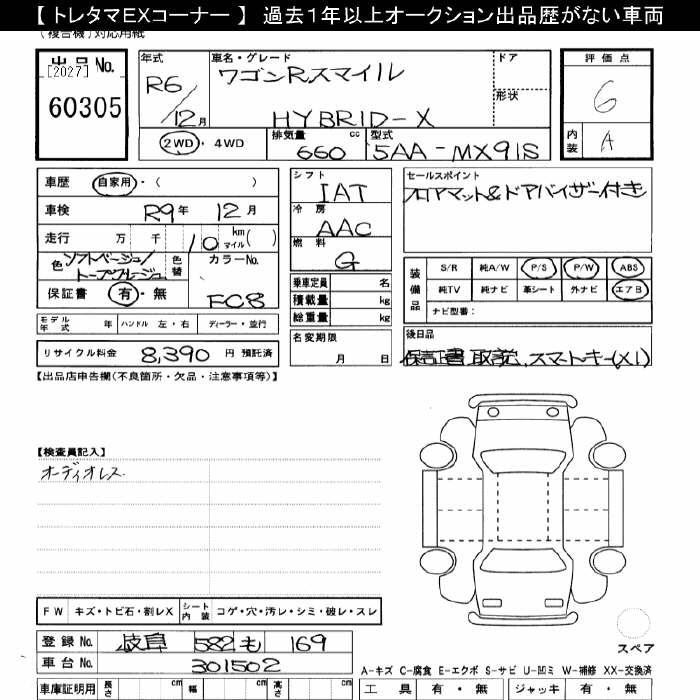 【 トレタマEXコーナー 】 過去1年以上オークション出品歴がない車両
(複合機)対応用紙
出品No.
[2027]
60305
年式
R6/12月
車名・グレード
ワゴンRスマイル
HYBRID-X
ドア
形状
評価点
6
内装
A
2WD・4WD
排気量 660 cc
型式 5AA-MX91S
車歴 自家用・( )
車検 R9年 12月
走行 万 千 10 km マイル( )
色 ソフトベージュ/トープグレージュ
色替
カラーNo.
FC8
保証書 有・無
モデル年式 年 ハンドル 左・右 ディーラー・並行
リサイクル料金 8,390 円 預託済
シフト
IAT
冷房
AAC
燃料
G
乗車定員 名
積載量 kg
総重量 kg
名変期限
月 日
セールスポイント
フロアマット&ドアバイザー付き
装備品
S/R 純A/W P/S P/W ABS
純TV 純ナビ 革シート 外ナビ エアB
ナビ型番:
後日品
保証書 取説 スマートキー(X1)
【出品店申告欄(不良箇所・欠品・注意事項等)】
【検査員記入】
オーディオレス
FW キズ・トビ石・割レX シート内装 コゲ・穴・汚レ・シミ・破レ・スレ
登録No. 岐阜 582 も 169
車台No. 301502
車庫証明用 長さ cm 幅 cm 高さ cm
スペア
A-キズ C-腐食 E-エクボ S-サビ U-凹ミ W-補修 XX-交換済
工具 有・無 ジャッキ 有・無